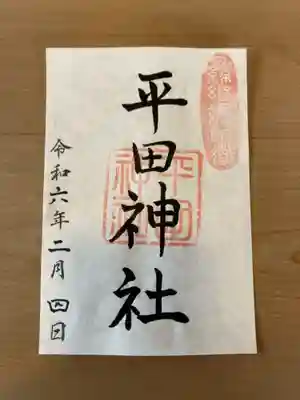 平田神社
令和六年二月四日